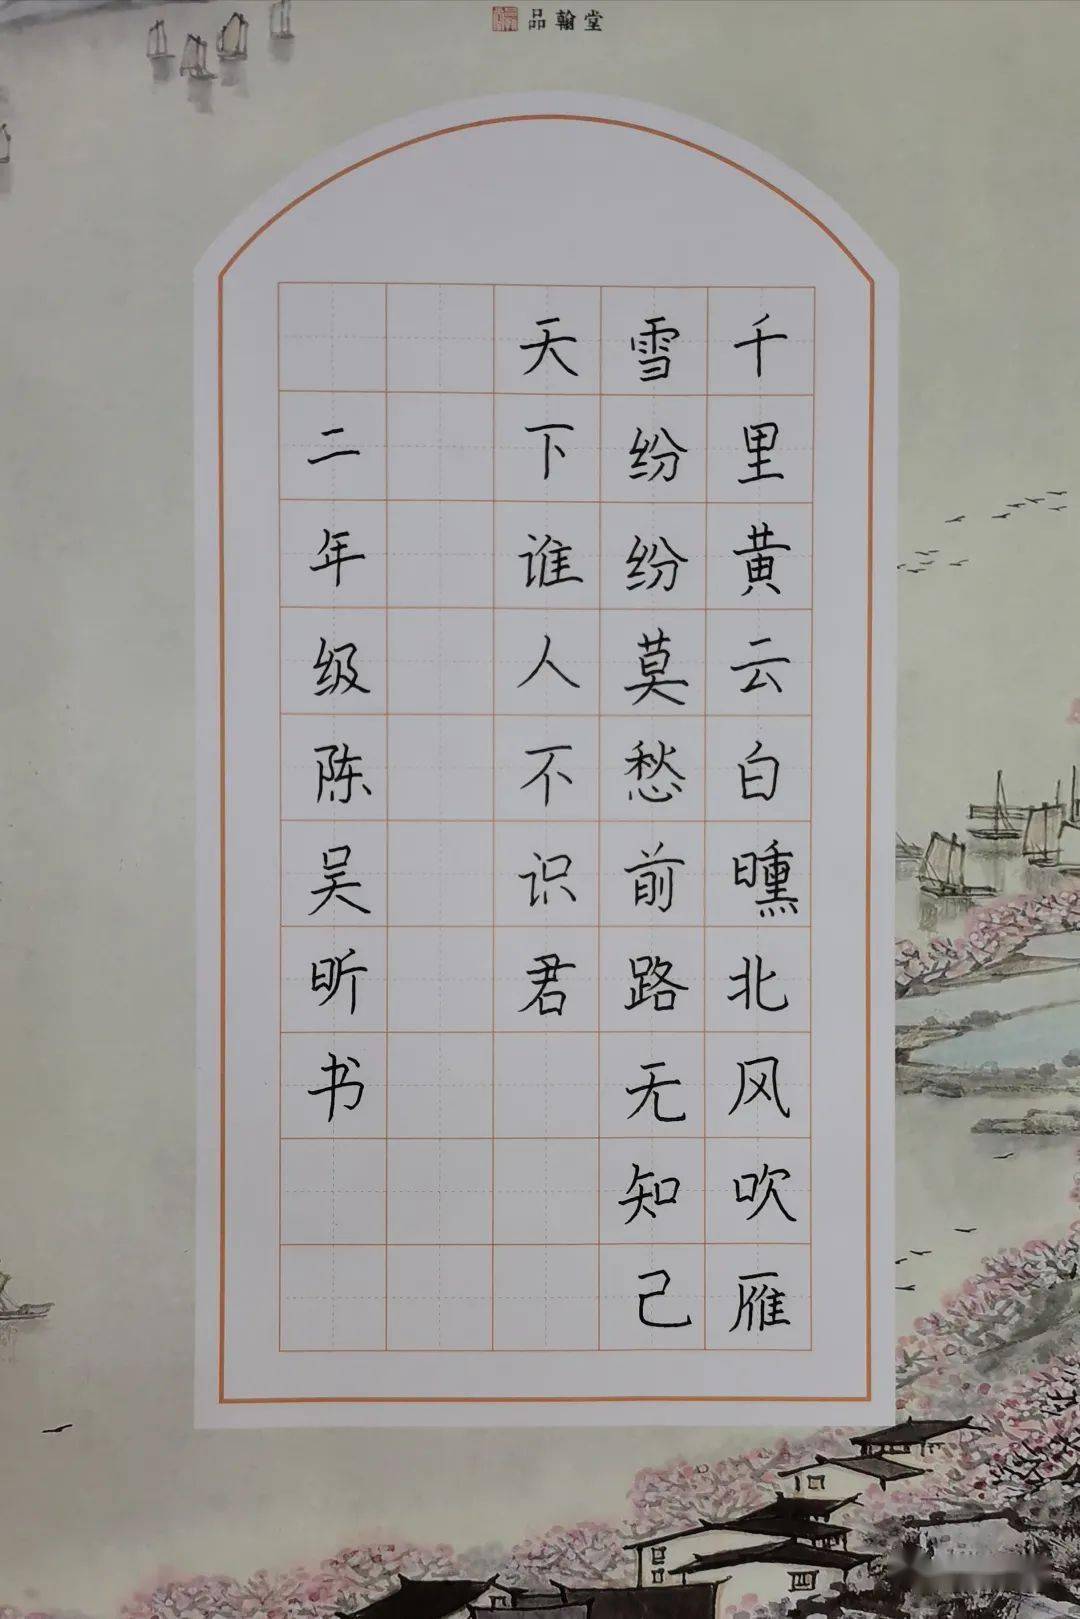 品翰堂
千里黄云白曛北风吹雁
雪纷纷莫愁前路无知己
天下谁人不识君
二年级陈吴昕书